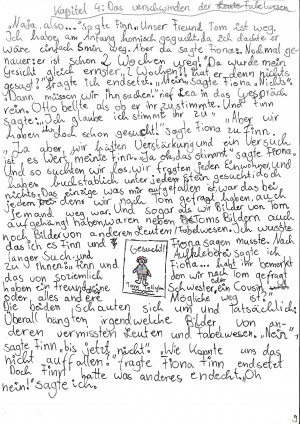 Kapitel 4: Das verschwinden der Fabelwesen
„Naja, also..." sagte Finn. „Unser Freund Tom ist weg.
Ich habe am Anfang komisch geguckt, da ich dachte er
wäre einfach Finn weg. Aber da sagte Fiona: „Nochmal ge-
nauer: er ist schon 2 Wochen weg!" Da wurde mein
Gesicht gleich ernster. „2 Wochen!! Hat er denn nichts
gesagt? fragte ich endsetzt. „Nein" sagte Fiona, „Nichts"
„Dann müssen wir ihn suchen!" rief Lea in das Gespräch
rein. Otto bellte als ob er ihr zustimmte. Und Finn
sagte: „Ich glaube ich stimmt ihr zu" „Aber wir
haben ihn doch schon gesucht!" sagte Fiona zu Finn.
„Ja aber, wir hätten Verstärkung und ein Versuch
ist es Wert meinte Finn. „Ja oh, das stimmt" sagte Fiona.
Und so suchten wir los, wir fragten jeden Einwohner, und
haben buchstäblich unter jedem Stein gesucht, doch
nichts. Das einzige was mir aufgefallen ist war das bei
jedem den wir nach Tom gefragt haben, auch
jemand weg war. Und sogar als wir Bilder von Tom
aufgehängt haben, waren neben Toms Bildern auch
noch Bilder von anderen Leuten/Fabelwesen. Ich wusste
das ich es Finn und Fiona sagen musste. Nach
langer Such- und Aufkleberei sagte ich
zu Finn und Fiona „habt ihr bemerkt
das von so ziemlich den wir nach Tom gefragt
haben ein Freund, eine Schwester, ein Cousin,
oder alles andere Mögliche weg ist?"
Gesucht!
Tom
Die beiden schauten sich um und tatsächlich:
Überal hangten irgendwelche Bilder von an-
deren vermissten Leuten und Fabelwesen. „Nein",
sagte Finn, bis jetzt nicht". „Wie konnte uns das
nicht auffallen? fragte Fiona Finn endsetzt
Doch Finn hatte was anderes endeckt. „Oh
nein!" sagte ich.
9